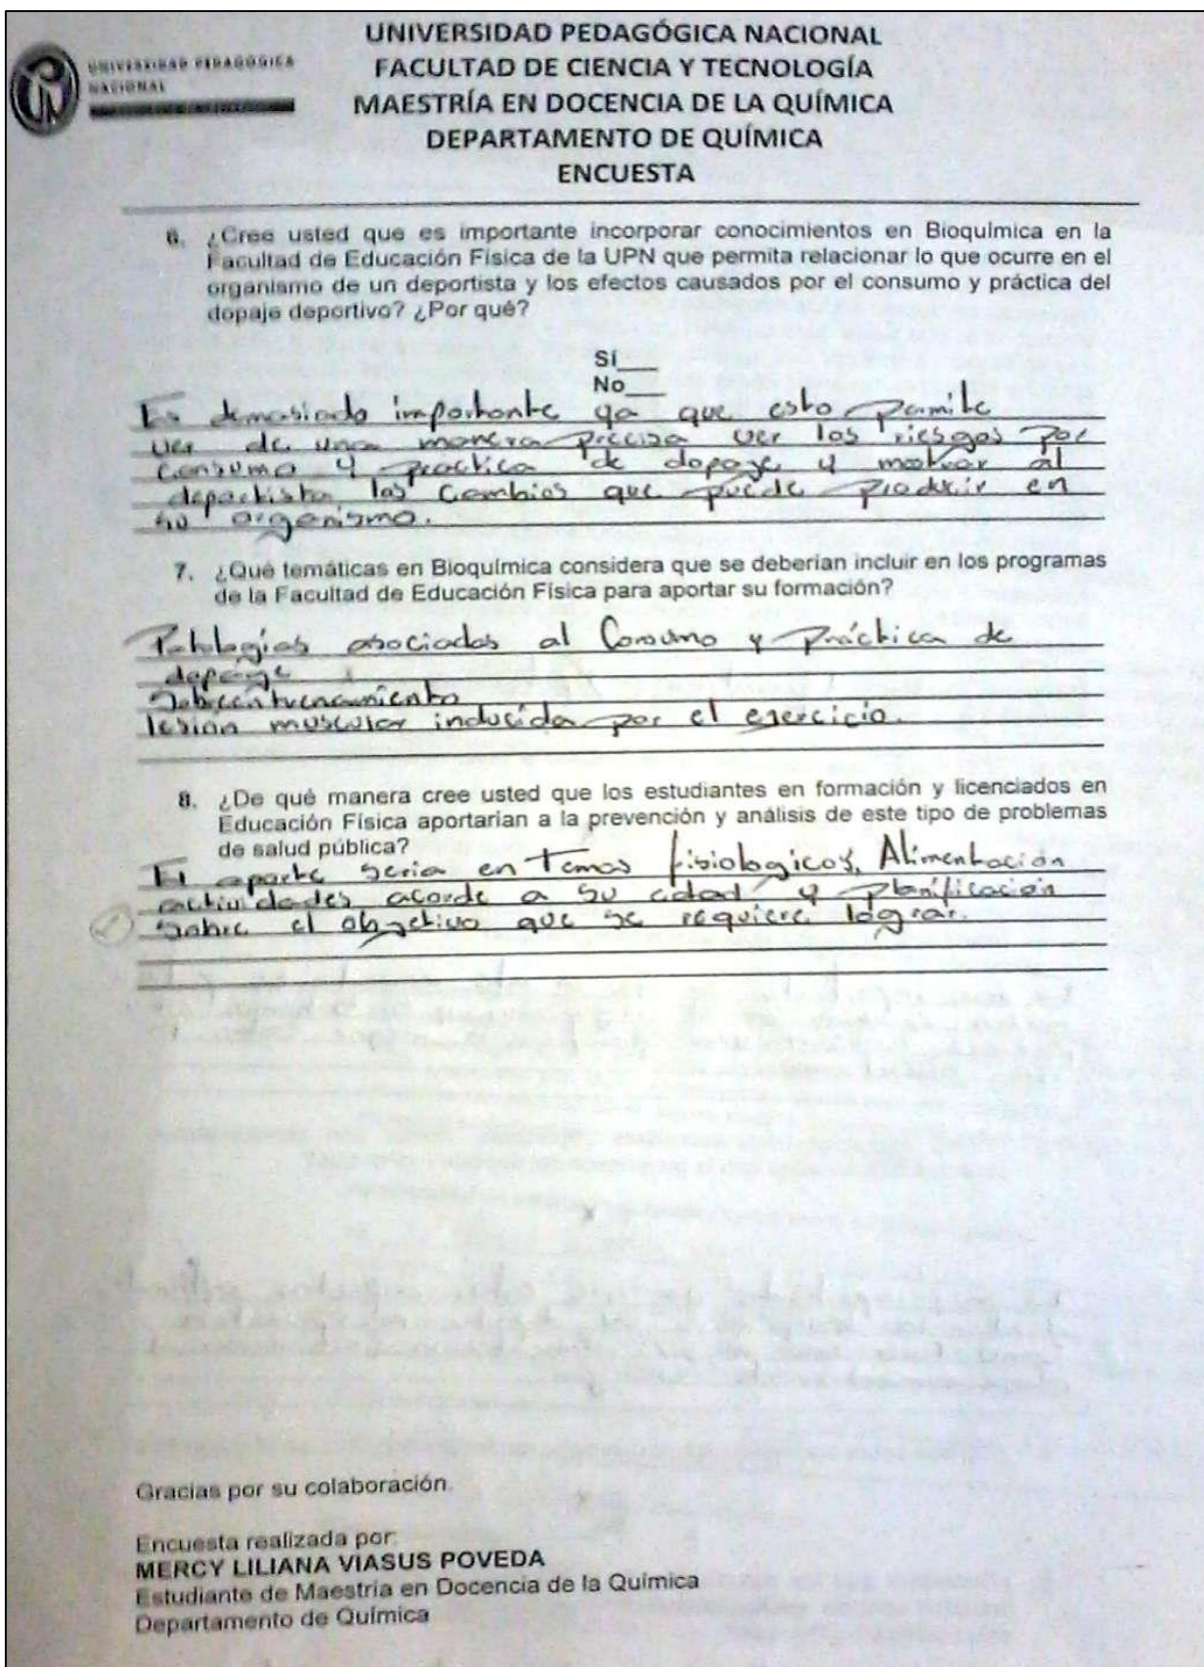 UNIVERSIDAD PEDAGÓGICA
NACIONAL
UNIVERSIDAD PEDAGÓGICA NACIONAL
FACULTAD DE CIENCIA Y TECNOLOGÍA
MAESTRÍA EN DOCENCIA DE LA QUÍMICA
DEPARTAMENTO DE QUÍMICA
ENCUESTA
6. ¿Cree usted que es importante incorporar conocimientos en Bioquímica en la
Facultad de Educación Física de la UPN que permita relacionar lo que ocurre en el
organismo de un deportista y los efectos causados por el consumo y práctica del
dopaje deportivo? ¿Por qué?
SI___
No___
Es demasiado importante ya que esto permite
ver de una manera precisa ver los riesgos por
consumo y practica de dopaje y mostrar al
deportista los cambios que puede producir en
su organismo.
7. ¿Qué temáticas en Bioquímica considera que se deberían incluir en los programas
de la Facultad de Educación Física para aportar su formación?
Patologías asociadas al Consumo y Práctica de
dopaje
Sobreentrenamiento
lesion muscular inducida por el ejercicio.
8. ¿De qué manera cree usted que los estudiantes en formación y licenciados en
Educación Física aportarían a la prevención y análisis de este tipo de problemas
de salud pública?
El aporte seria en Temas fisiologicos, Alimentación
actividades acorde a su edad y planificación
sobre el objetivo que se requiere lograr.
Gracias por su colaboración.
Encuesta realizada por:
MERCY LILIANA VIASUS POVEDA
Estudiante de Maestría en Docencia de la Química
Departamento de Química